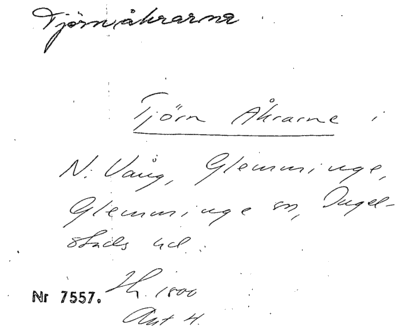 Tjörnåkrarne
Tjörn Åkrarne i
N. Vång, Glemminge,
Glemminge sn, Ingel-
stads hd.
Nr 7557. Lh. 1800
Akt 4.